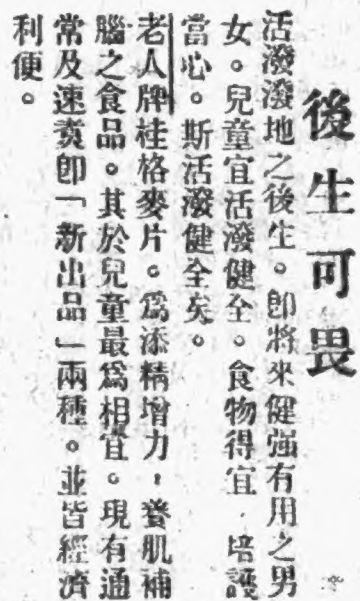 後生可畏
活潑潑地之後生。即將來健强有用之男
女。兒童宜活潑健全。食物得宜．培護
當心。斯活潑健全矣。
老人牌桂格麥片。爲添精增力，養肌補
腦之食品。其於兒童最爲相宜。現有通
常及速煑即「新出品」兩種。並皆經濟
利便。